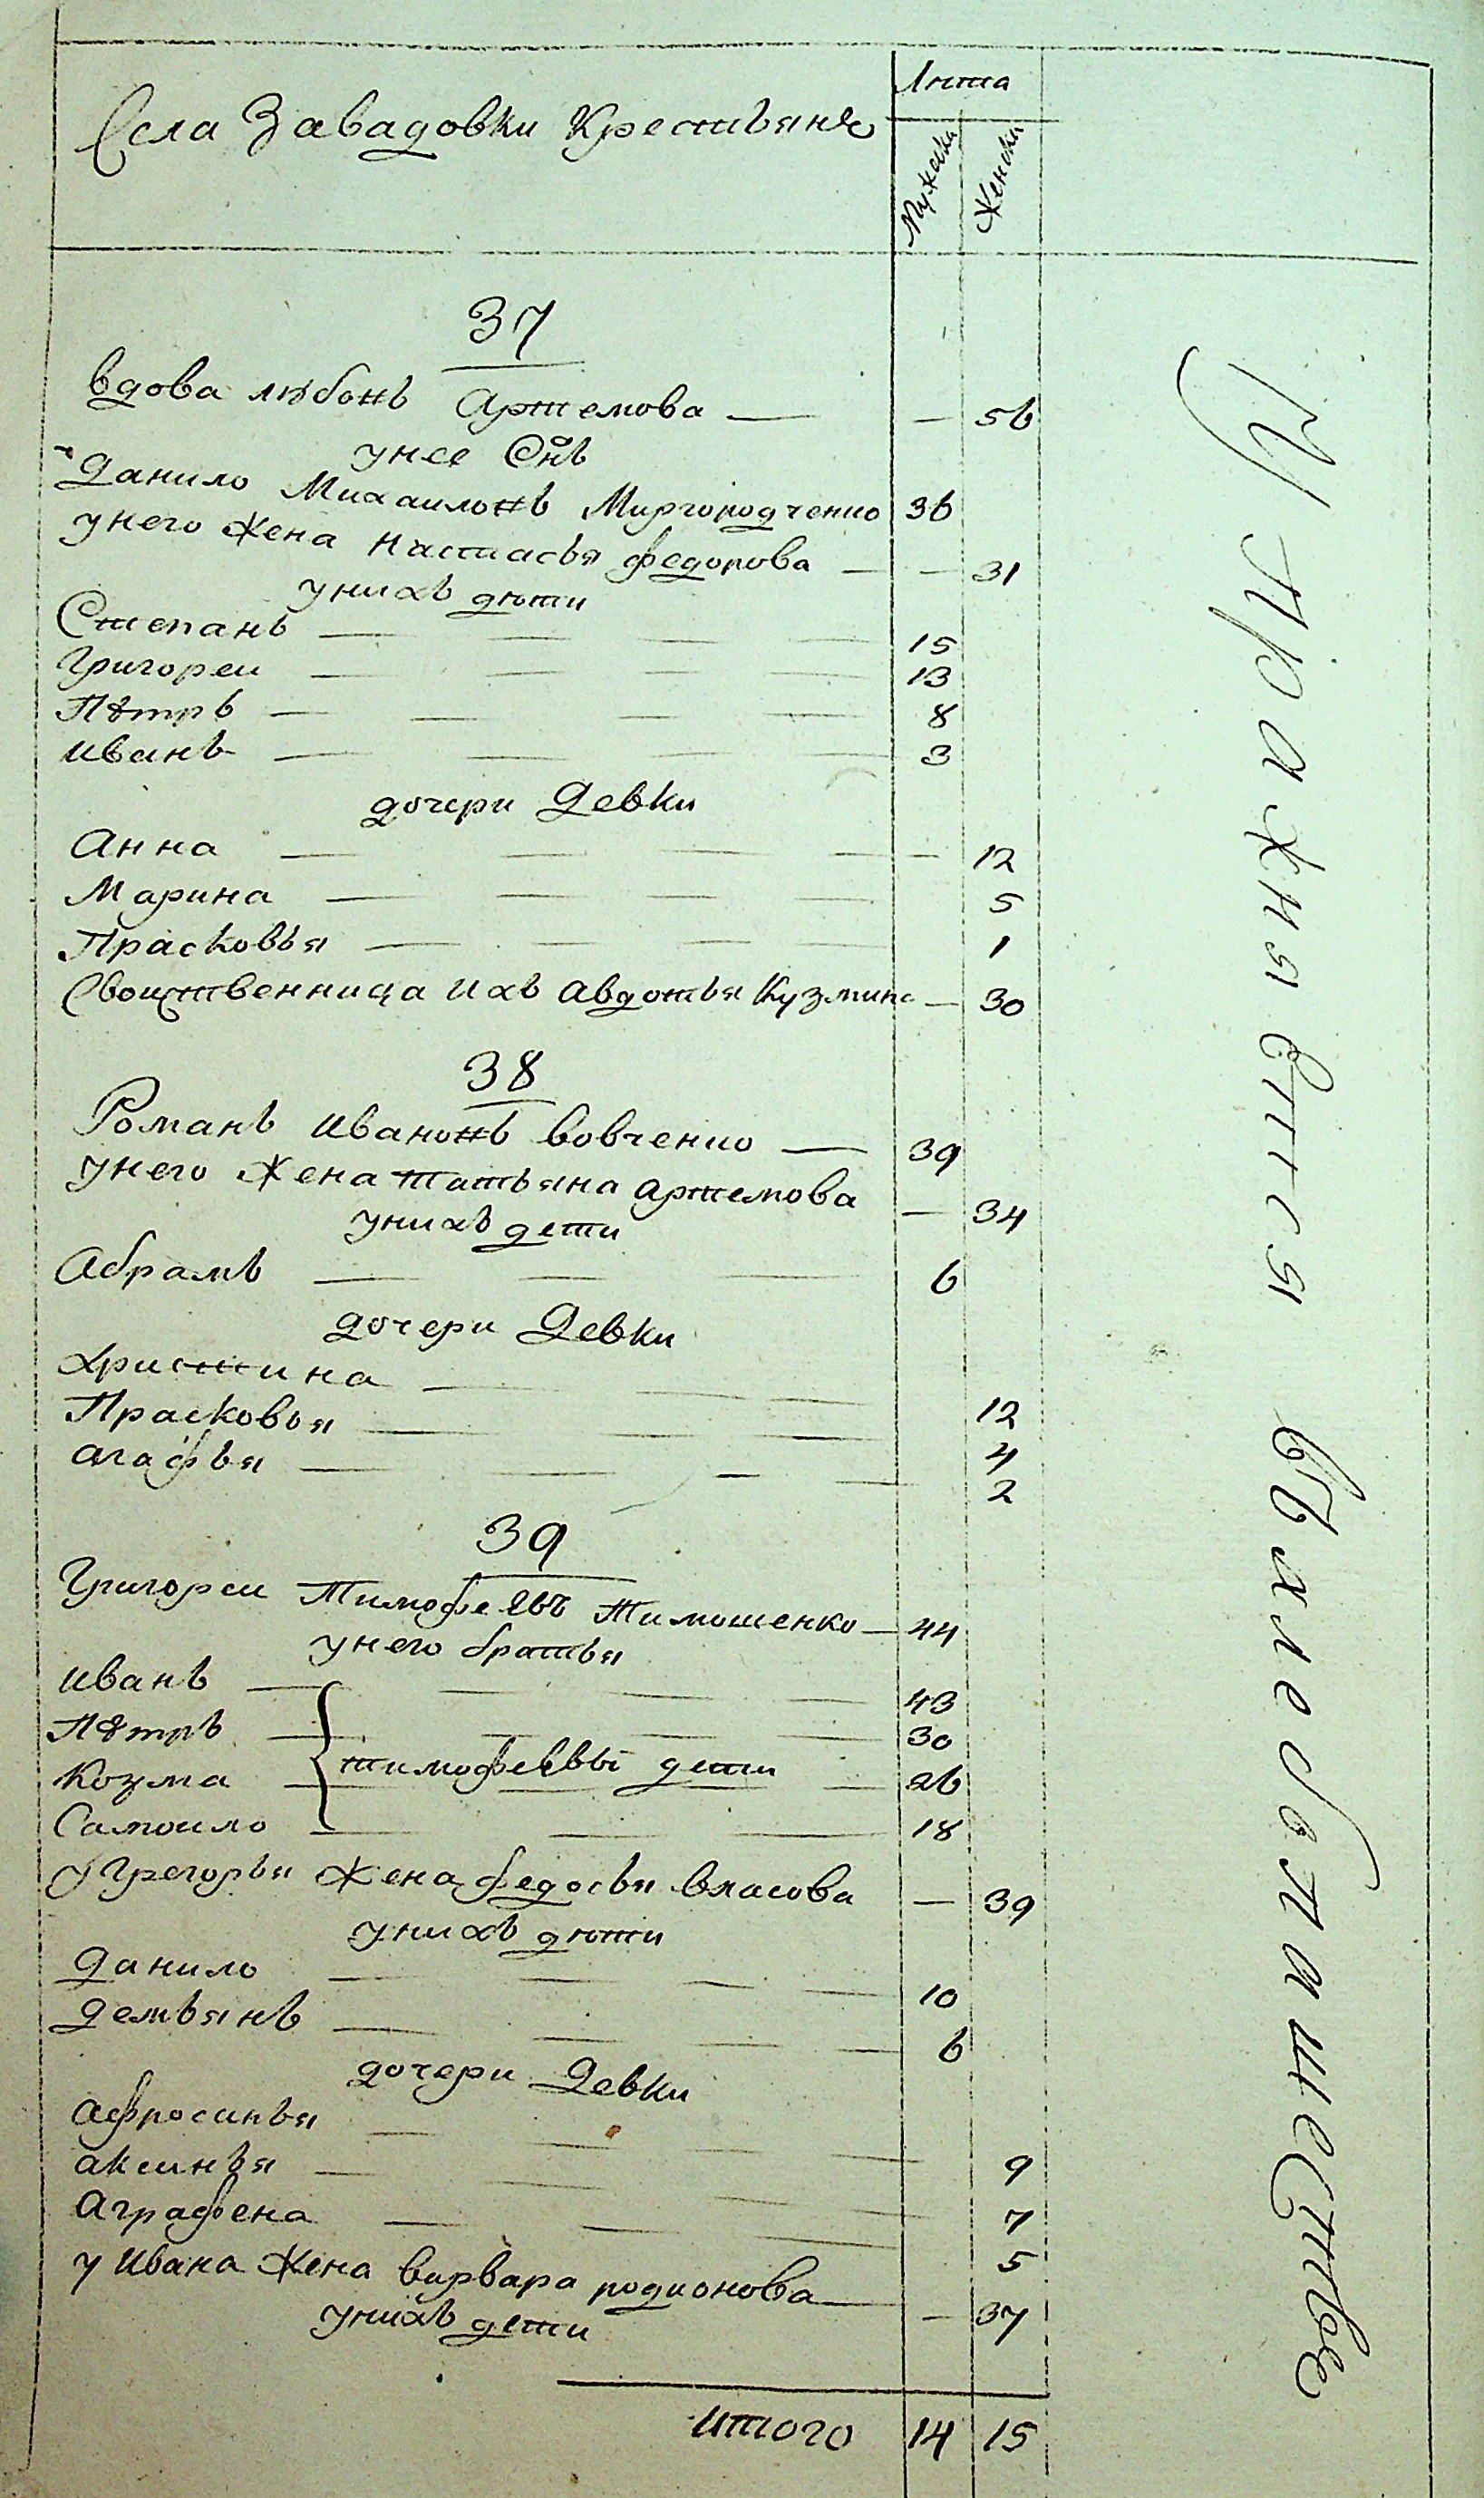 Села Завадовки Крестьянъ
Лѣта
Мужеска
Женска
37
вдова любовь Артемова — — 56
унее Сн̃ъ
Данило Михаиловъ Миргородченко 36
унего жена Настасья федорова — — 31
унихъ дѣти
Степанъ — — — — 15
Григореи — — — — 13
Пѣтръ — — — — 8
иванъ — — — — 3
дочери Девки
Анна — — — — — 12
Марина — — — — 5
Прасковья — — — — 1
Своиственница ихъ Авдотья Кузмина — 30
38
Романъ ивановъ вовченко — 39
унего жена татьяна артемова — 34
унихъ дети
Абрамъ — — — 6
дочери Девки
христина — — — 12
Прасковья — — — 4
агафья — — — — 2
39
Григореи Тимофѣевъ Тимошенко — 44
унего братья
иванъ — — — — 43
Пѣтръ — — — 30
Козма — — — 26
тимофѣевы дети
Самоило — — — 18
у Грегорья жена федосья власова — 39
унихъ дѣти
Данило — — — — 10
демьянъ — — — — 6
дочери Девки
афросинья — — — 9
аксинья — — — 7
Аграфена — — — 5
у ивана жена варвара родионова — — 37
унихъ дети
итого 14 15
Упражняются
въ хлебопашестве